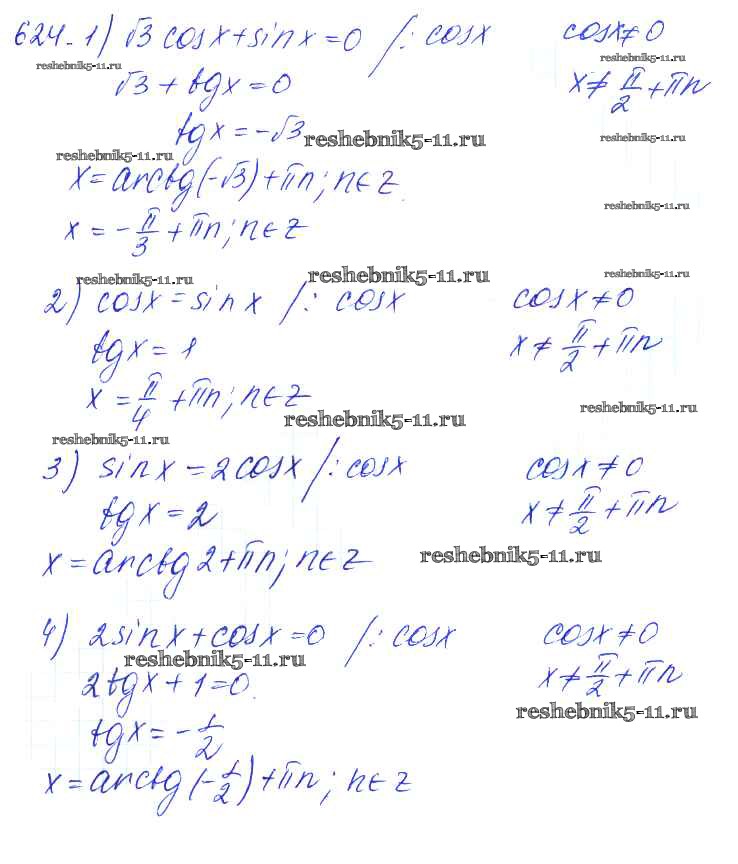 624-1) √3 cosx + sinx = 0 /: cosx cosx ≠ 0
reshebnik5-11.ru reshebnik5-11.ru
√3 + tgx = 0 x ≠ π/2 + πn
tgx = -√3 reshebnik5-11.ru reshebnik5-11.ru
reshebnik5-11.ru
x = arctg(-√3) + πn; n ∈ Z
reshebnik5-11.ru
x = -π/3 + πn; n ∈ Z
reshebnik5-11.ru reshebnik5-11.ru reshebnik5-11.ru
2) cosx = sinx /: cosx cosx ≠ 0
tgx = 1 x ≠ π/2 + πn
x = π/4 + πn; n ∈ Z
reshebnik5-11.ru reshebnik5-11.ru
reshebnik5-11.ru
3) sinx = 2cosx /: cosx cosx ≠ 0
tgx = 2 x ≠ π/2 + πn
x = arctg2 + πn; n ∈ Z reshebnik5-11.ru
4) 2sinx + cosx = 0 /: cosx cosx ≠ 0
reshebnik5-11.ru
2tgx + 1 = 0. x ≠ π/2 + πn
reshebnik5-11.ru
tgx = -1/2
x = arctg(-1/2) + πn; n ∈ Z